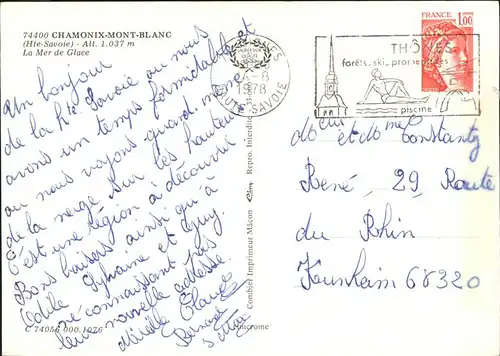 74400 CHAMONIX-MONT-BLANC
(Hte-Savoie) - Alt. 1.037 m
La Mer de Glace
Un bonjour
de la Hte Savoie où nous
avons un temps formidable et
où nous voyons quand même
de la neige sur les hauteurs
C'est une région à découvrir
Bons baisers ainsi qu'à
Odile Sylvaine et Guy.
ne connaissant pas
leur nouvelle adresse.
Mireille Claude
Bernard
C 74056 000.1076
Combier Imprimeur Mâcon
Repro. Interdite
THONES
-8
1978
HAUTE-SAVOIE
THÔNES
forêts, ski, promenades
piscine
FRANCE
1,00
Mr et Mme Constantz
René, 29, Route
du Rhin
Kunheim 68320